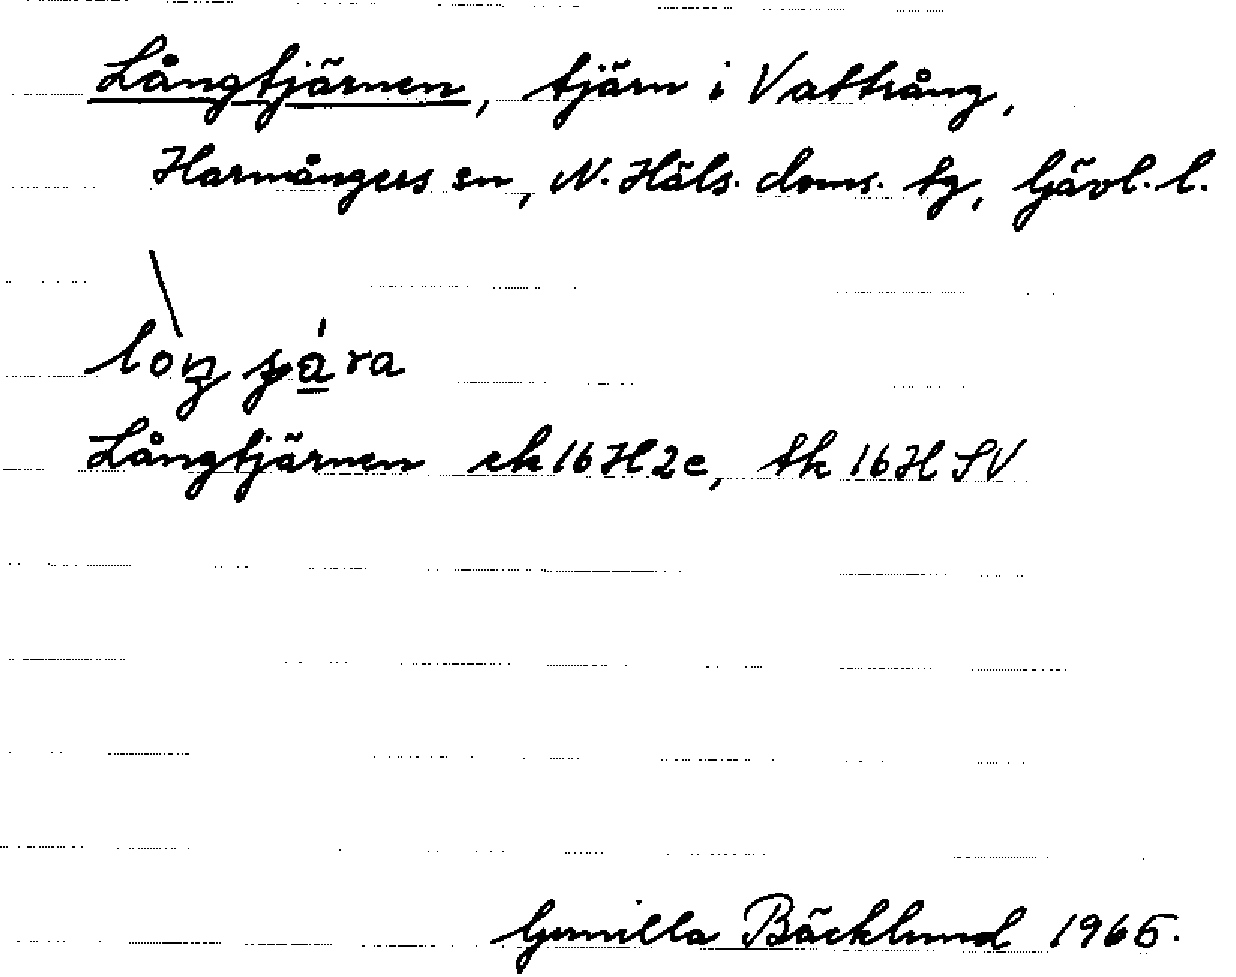 Långtjärnen, tjärn i Vattrång,
Harmångers sn, N. Häls. doms. tg, Gävl. l.
Långtjärnen ek 16H2c, tk 16H SV
Gunilla Bäcklund 1965.